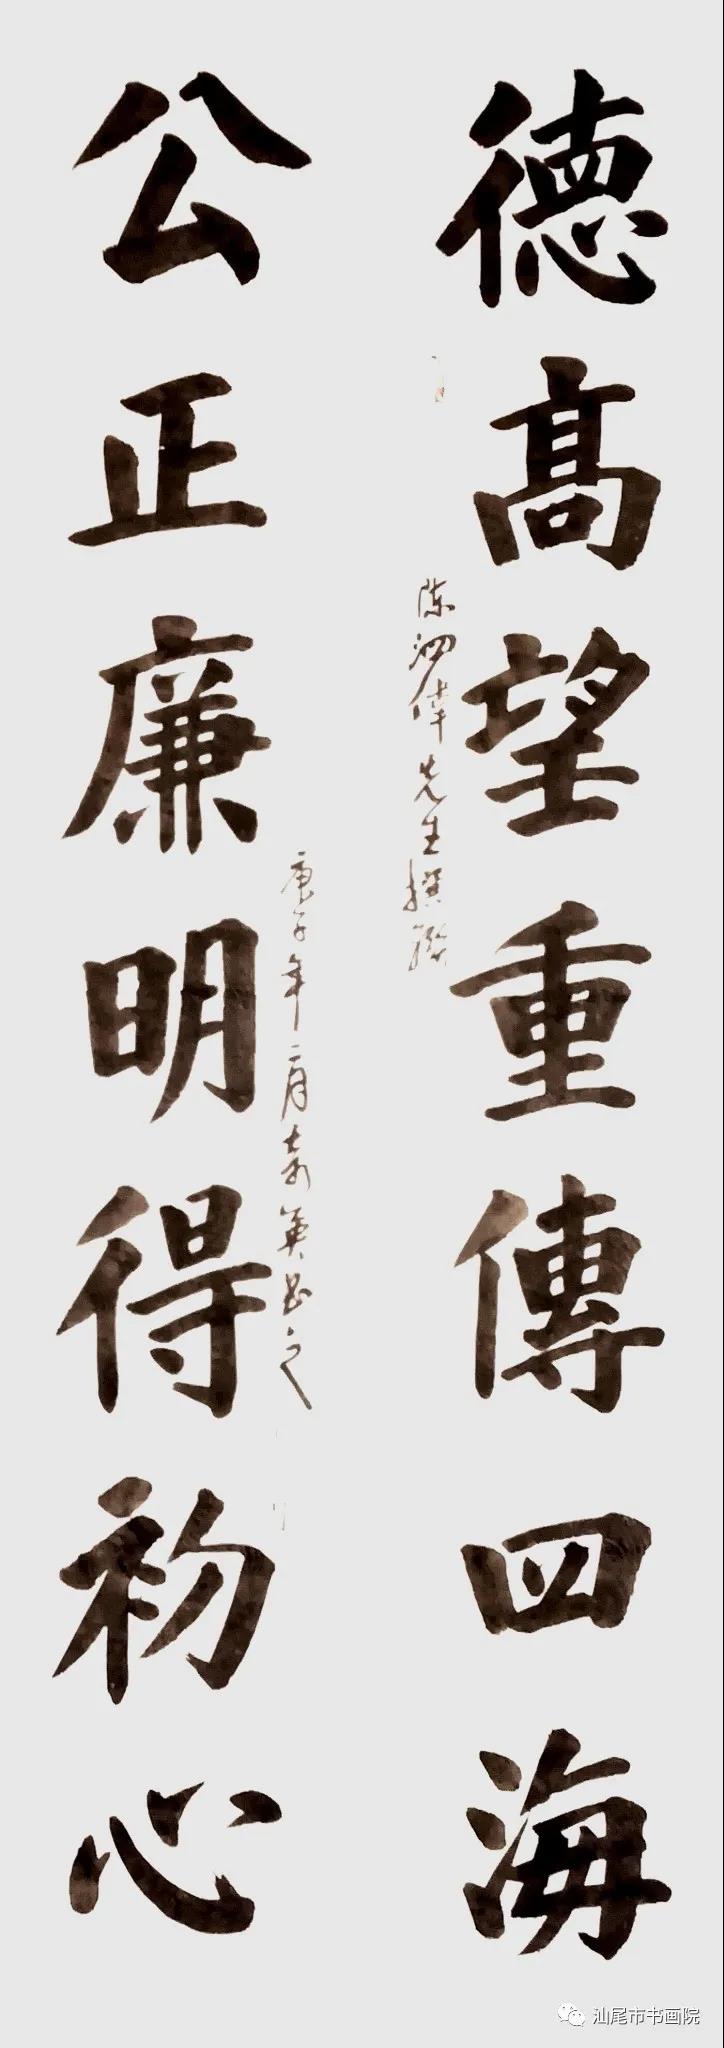 德高望重傳四海
陈泗偉先生撰聯
公正廉明得初心
庚子年二月奇英书之
汕尾市书画院